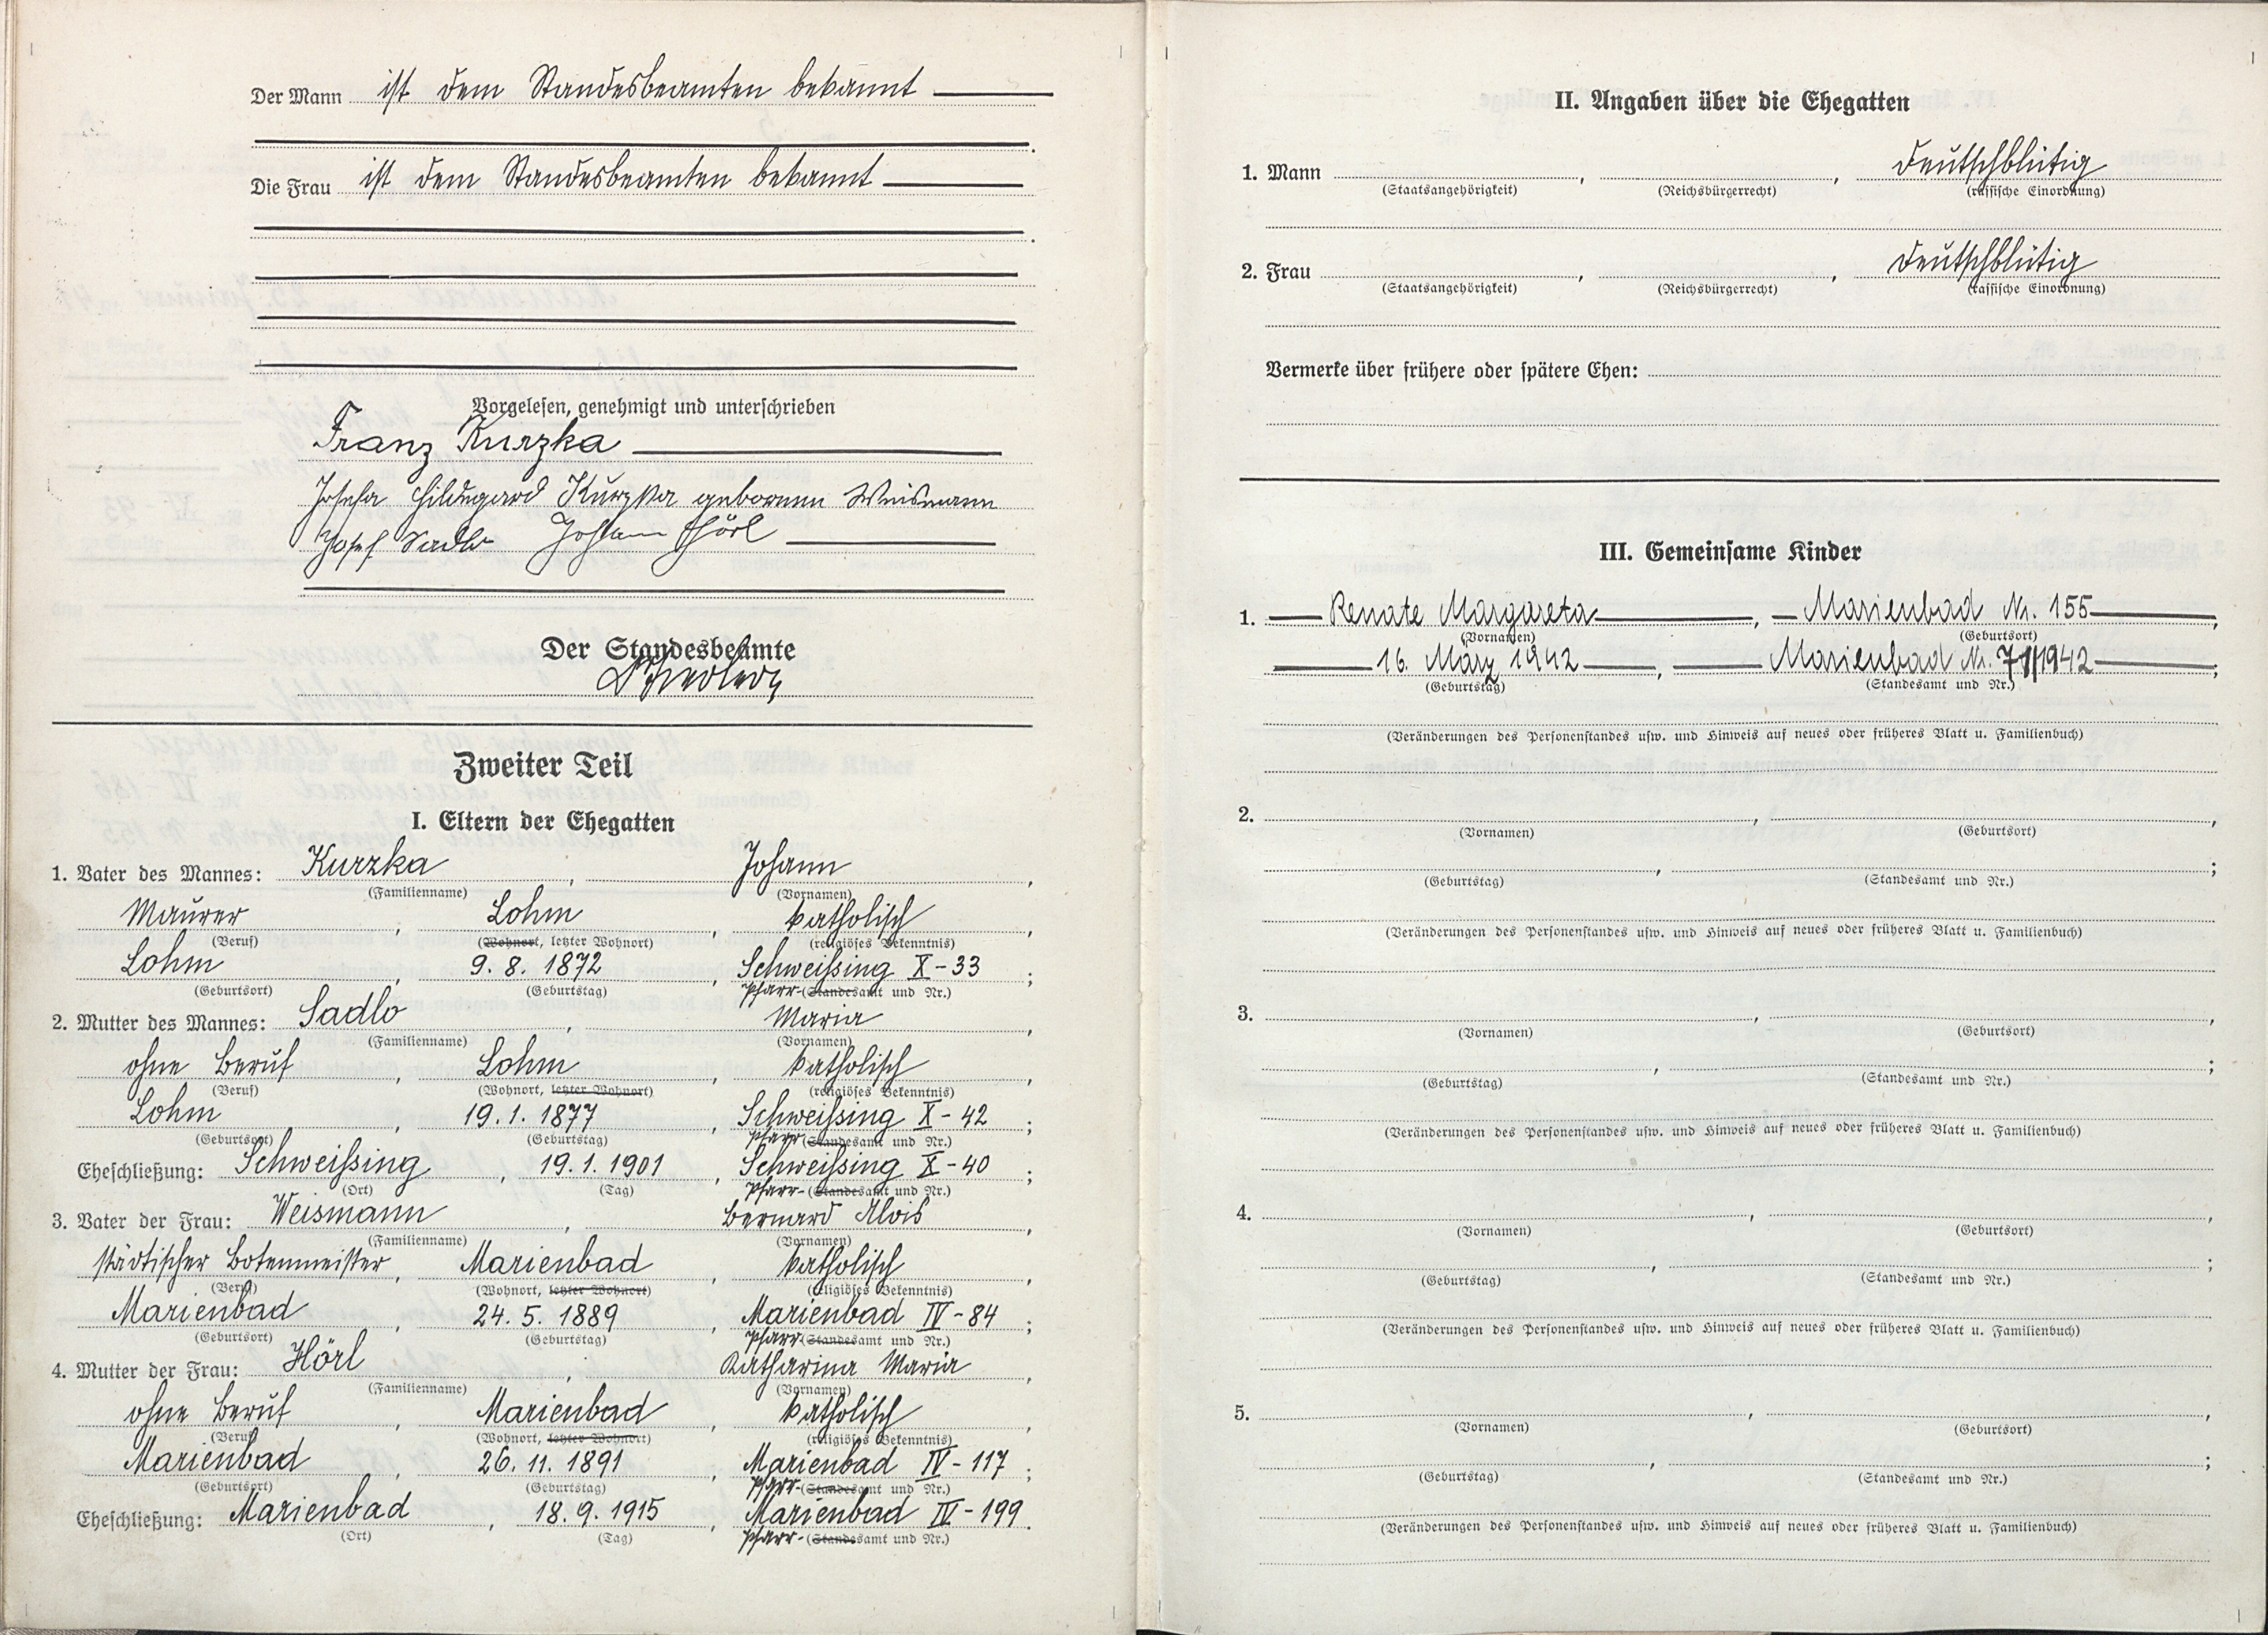 Der Mann ist dem Standesbeamten bekannt
Die Frau ist dem Standesbeamten bekannt
Vorgelesen, genehmigt und unterschrieben
Franz Kurzka
Josefa Hildegard Kurzka geborenen Weismann
Josef Sadlo Johann Hörl
Der Standesbeamte
Zweiter Teil
I. Eltern der Ehegatten
1. Vater des Mannes: Kurzka, Johann,
(Familienname) (Vornamen)
Maurer, Lohm, katholisch,
(Beruf) (Wohnort, letzter Wohnort) (religiöses Bekenntnis)
Lohm, 9. 8. 1872, Schweißing X-33;
(Geburtsort) (Geburtstag) Pfarr-(Standesamt und Nr.)
2. Mutter des Mannes: Sadlo, Maria,
(Familienname) (Vornamen)
ohne Beruf, Lohm, katholisch,
(Beruf) (Wohnort, letzter Wohnort) (religiöses Bekenntnis)
Lohm, 19. 1. 1877, Schweißing X-42;
(Geburtsort) (Geburtstag) Pfarr-(Standesamt und Nr.)
Eheschließung: Schweißing, 19. 1. 1901, Schweißing X-40;
(Ort) (Tag) Pfarr-(Standesamt und Nr.)
3. Vater der Frau: Weismann, Bernard Alois,
(Familienname) (Vornamen)
städtischer Botenmeister, Marienbad, katholisch,
(Beruf) (Wohnort, letzter Wohnort) (religiöses Bekenntnis)
Marienbad, 24. 5. 1889, Marienbad IV-84;
(Geburtsort) (Geburtstag) Pfarr-(Standesamt und Nr.)
4. Mutter der Frau: Hörl, Katharina Maria,
(Familienname) (Vornamen)
ohne Beruf, Marienbad, katholisch,
(Beruf) (Wohnort, letzter Wohnort) (religiöses Bekenntnis)
Marienbad, 26. 11. 1891, Marienbad IV-117;
(Geburtsort) (Geburtstag) Pfarr-(Standesamt und Nr.)
Eheschließung: Marienbad, 18. 9. 1915, Marienbad IV-199.
(Ort) (Tag) Pfarr-(Standesamt und Nr.)
II. Angaben über die Ehegatten
1. Mann, , deutschblütig
(Staatsangehörigkeit) (Reichsbürgerrecht) (rassische Einordnung)
2. Frau, , deutschblütig
(Staatsangehörigkeit) (Reichsbürgerrecht) (rassische Einordnung)
Vermerke über frühere oder spätere Ehen:
III. Gemeinsame Kinder
1. Renate Margareta, Marienbad Nr. 155,
(Vornamen) (Geburtsort)
16. März 1942, Marienbad Nr. 71/1942;
(Geburtstag) (Standesamt und Nr.)
(Veränderungen des Personenstandes usw. und Hinweis auf neues oder früheres Blatt u. Familienbuch)
2. , ,
(Vornamen) (Geburtsort)
, ;
(Geburtstag) (Standesamt und Nr.)
(Veränderungen des Personenstandes usw. und Hinweis auf neues oder früheres Blatt u. Familienbuch)
3. , ,
(Vornamen) (Geburtsort)
, ;
(Geburtstag) (Standesamt und Nr.)
(Veränderungen des Personenstandes usw. und Hinweis auf neues oder früheres Blatt u. Familienbuch)
4. , ,
(Vornamen) (Geburtsort)
, ;
(Geburtstag) (Standesamt und Nr.)
(Veränderungen des Personenstandes usw. und Hinweis auf neues oder früheres Blatt u. Familienbuch)
5. , ,
(Vornamen) (Geburtsort)
, ;
(Geburtstag) (Standesamt und Nr.)
(Veränderungen des Personenstandes usw. und Hinweis auf neues oder früheres Blatt u. Familienbuch)